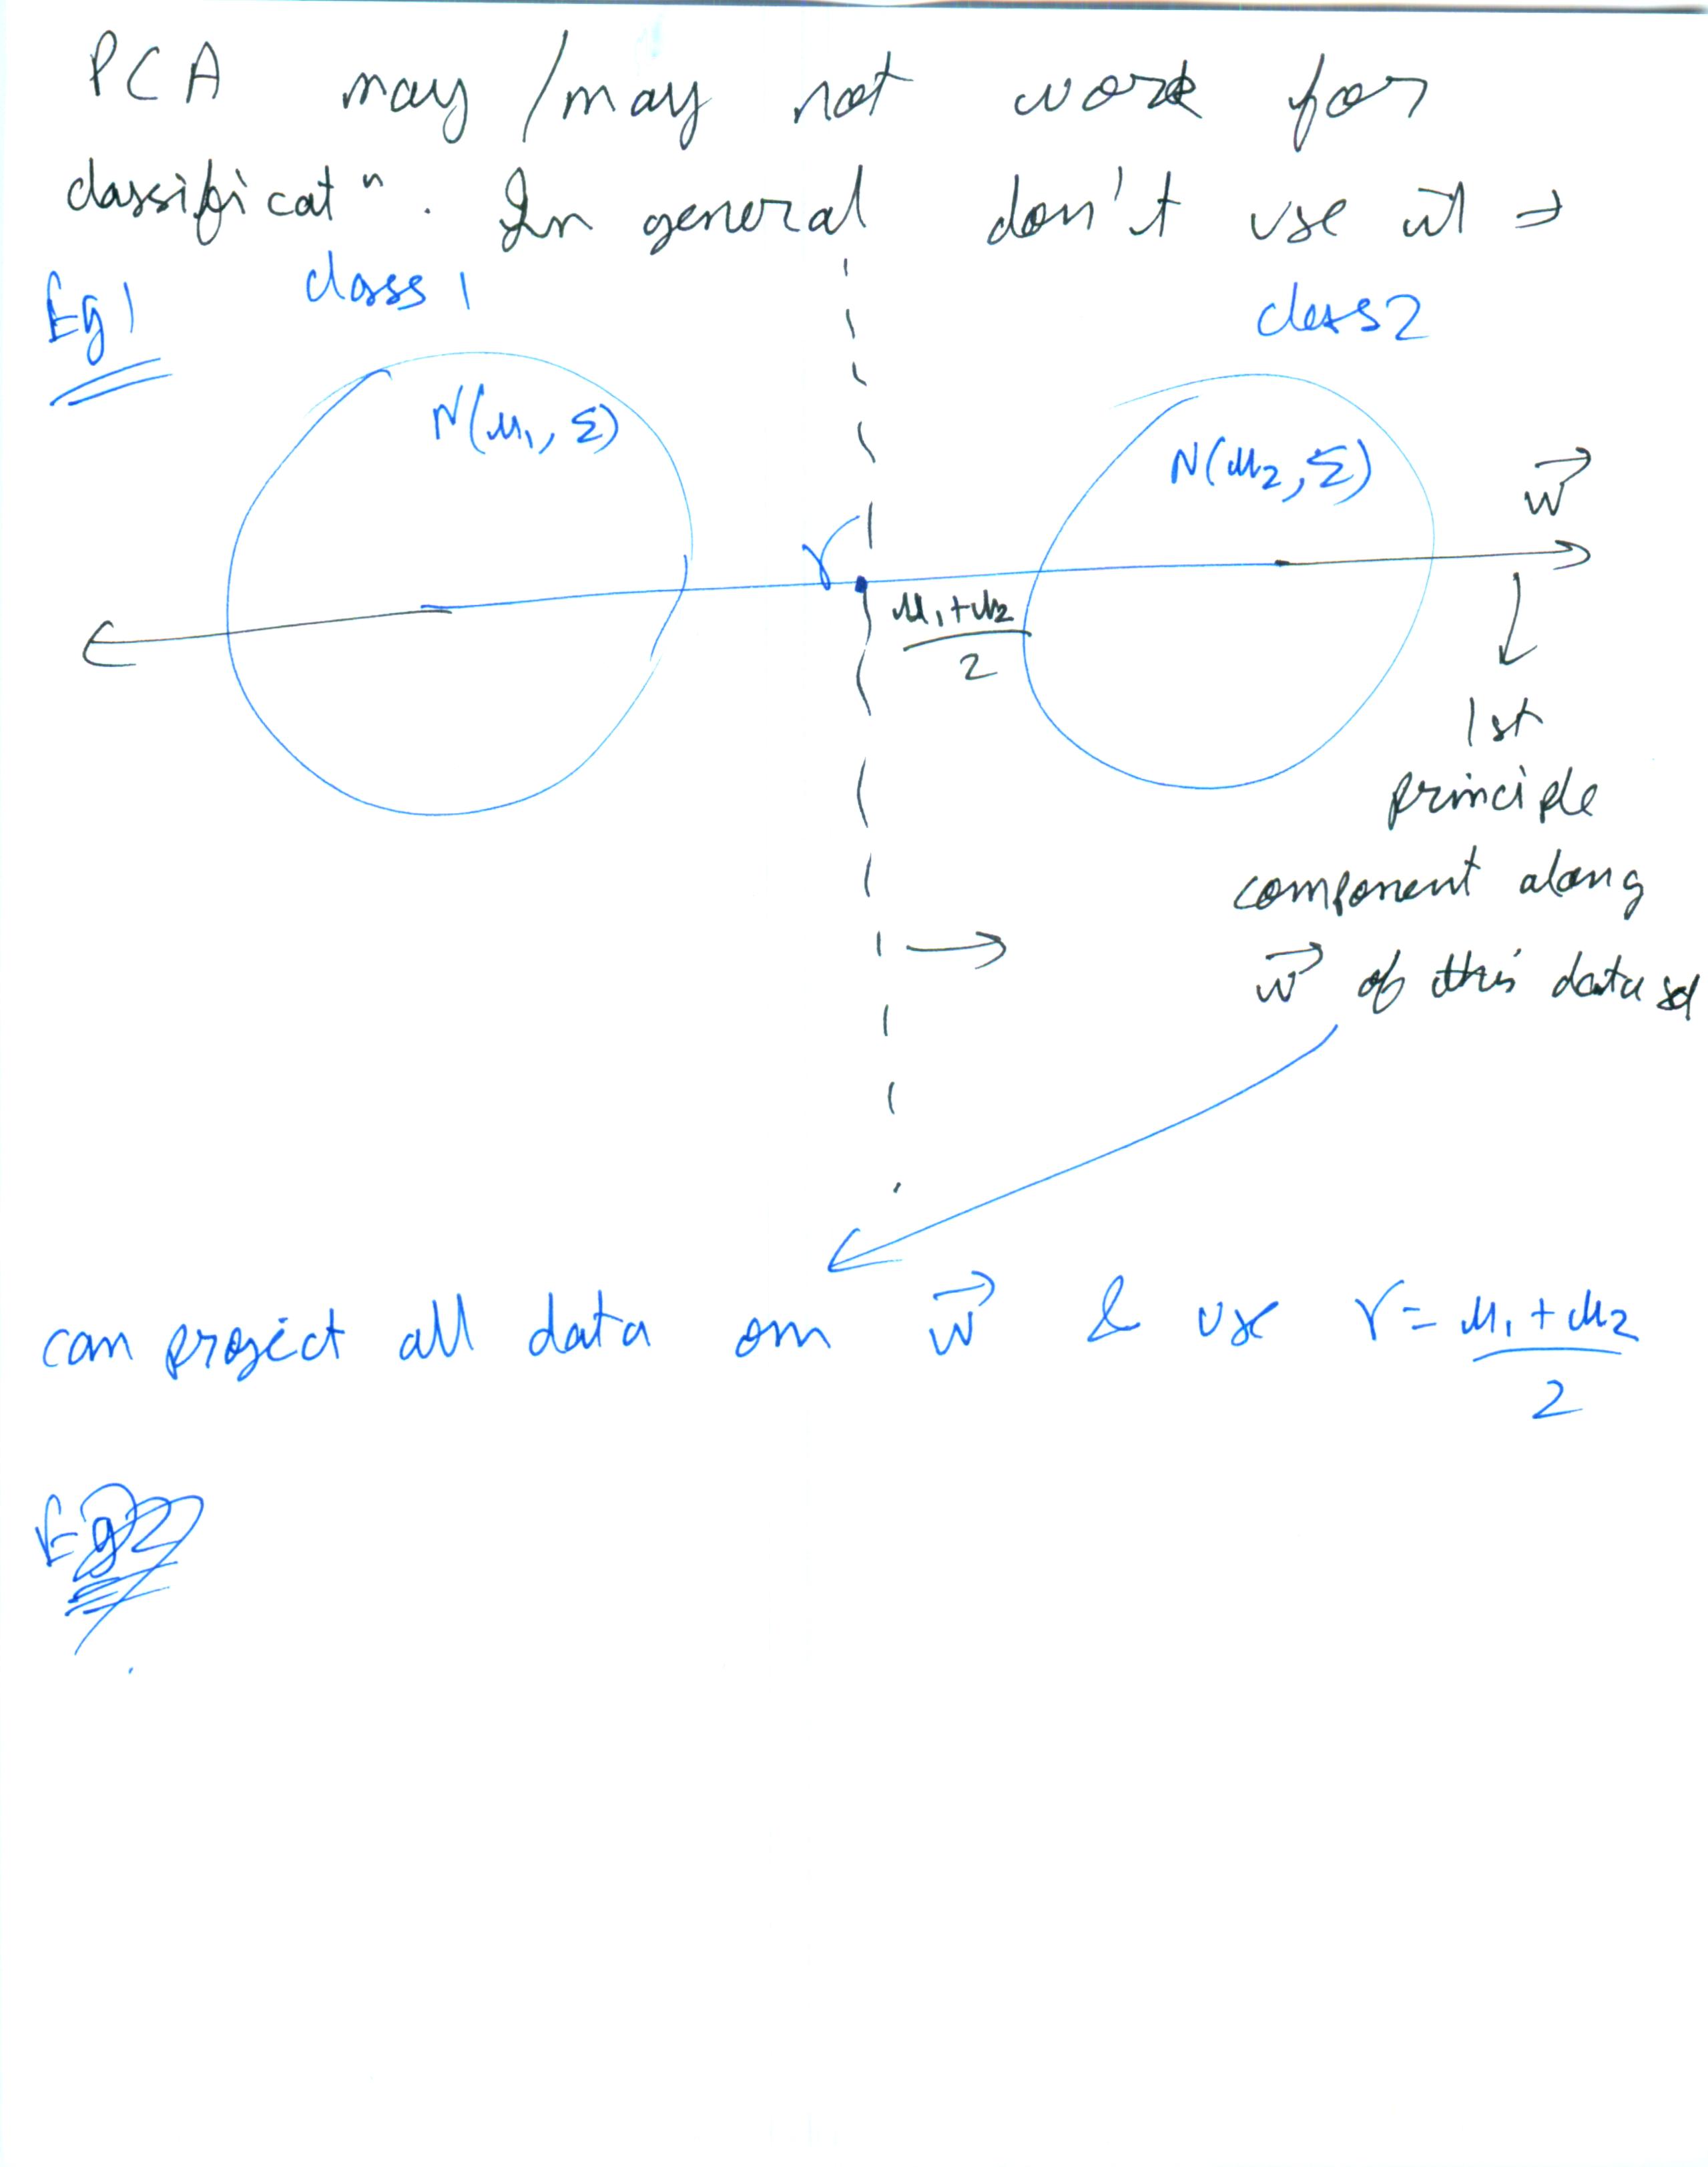 PCA may / may not work for
classificatⁿ. In general don't use it ⇒
Eg 1 class 1 class 2
N(μ₁, Σ) N(μ₂, Σ)
w⃗
γ
μ₁+μ₂
2
1st
principle
component along
w⃗ of this data set
can project all data on w⃗ & use γ = μ₁ + μ₂
2